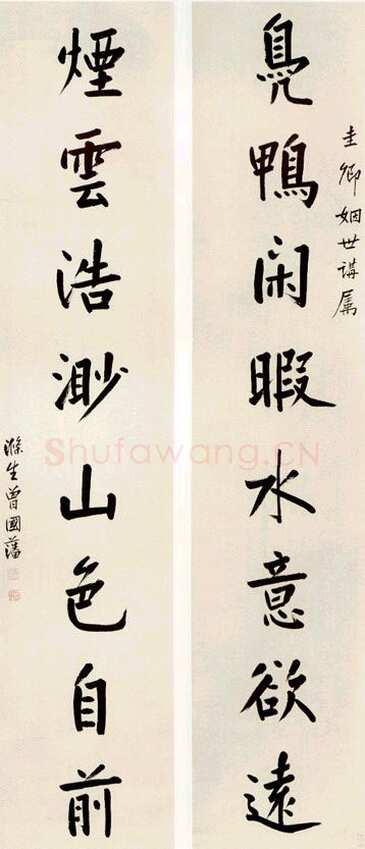 圭卿姻世講属
鳬鴨閑暇水意欲遠
煙雲浩渺山色自前
滌生曾國藩
Shufawang.CN